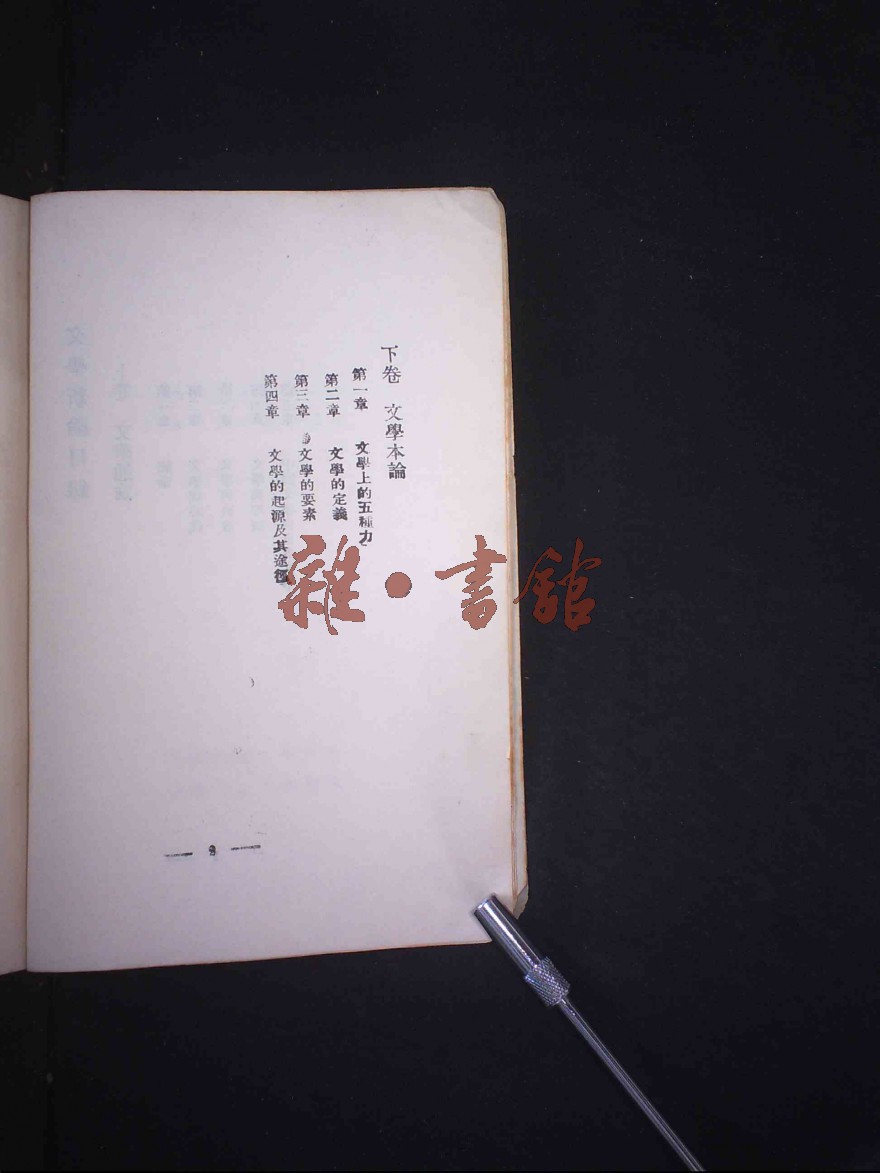 下卷 文學本論
第一章 文學上的五種力
第二章 文學的定義
第三章 文學的要素
第四章 文學的起源及其途徑
雜·書館